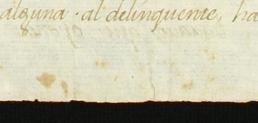 alguna. al delinquente, ha